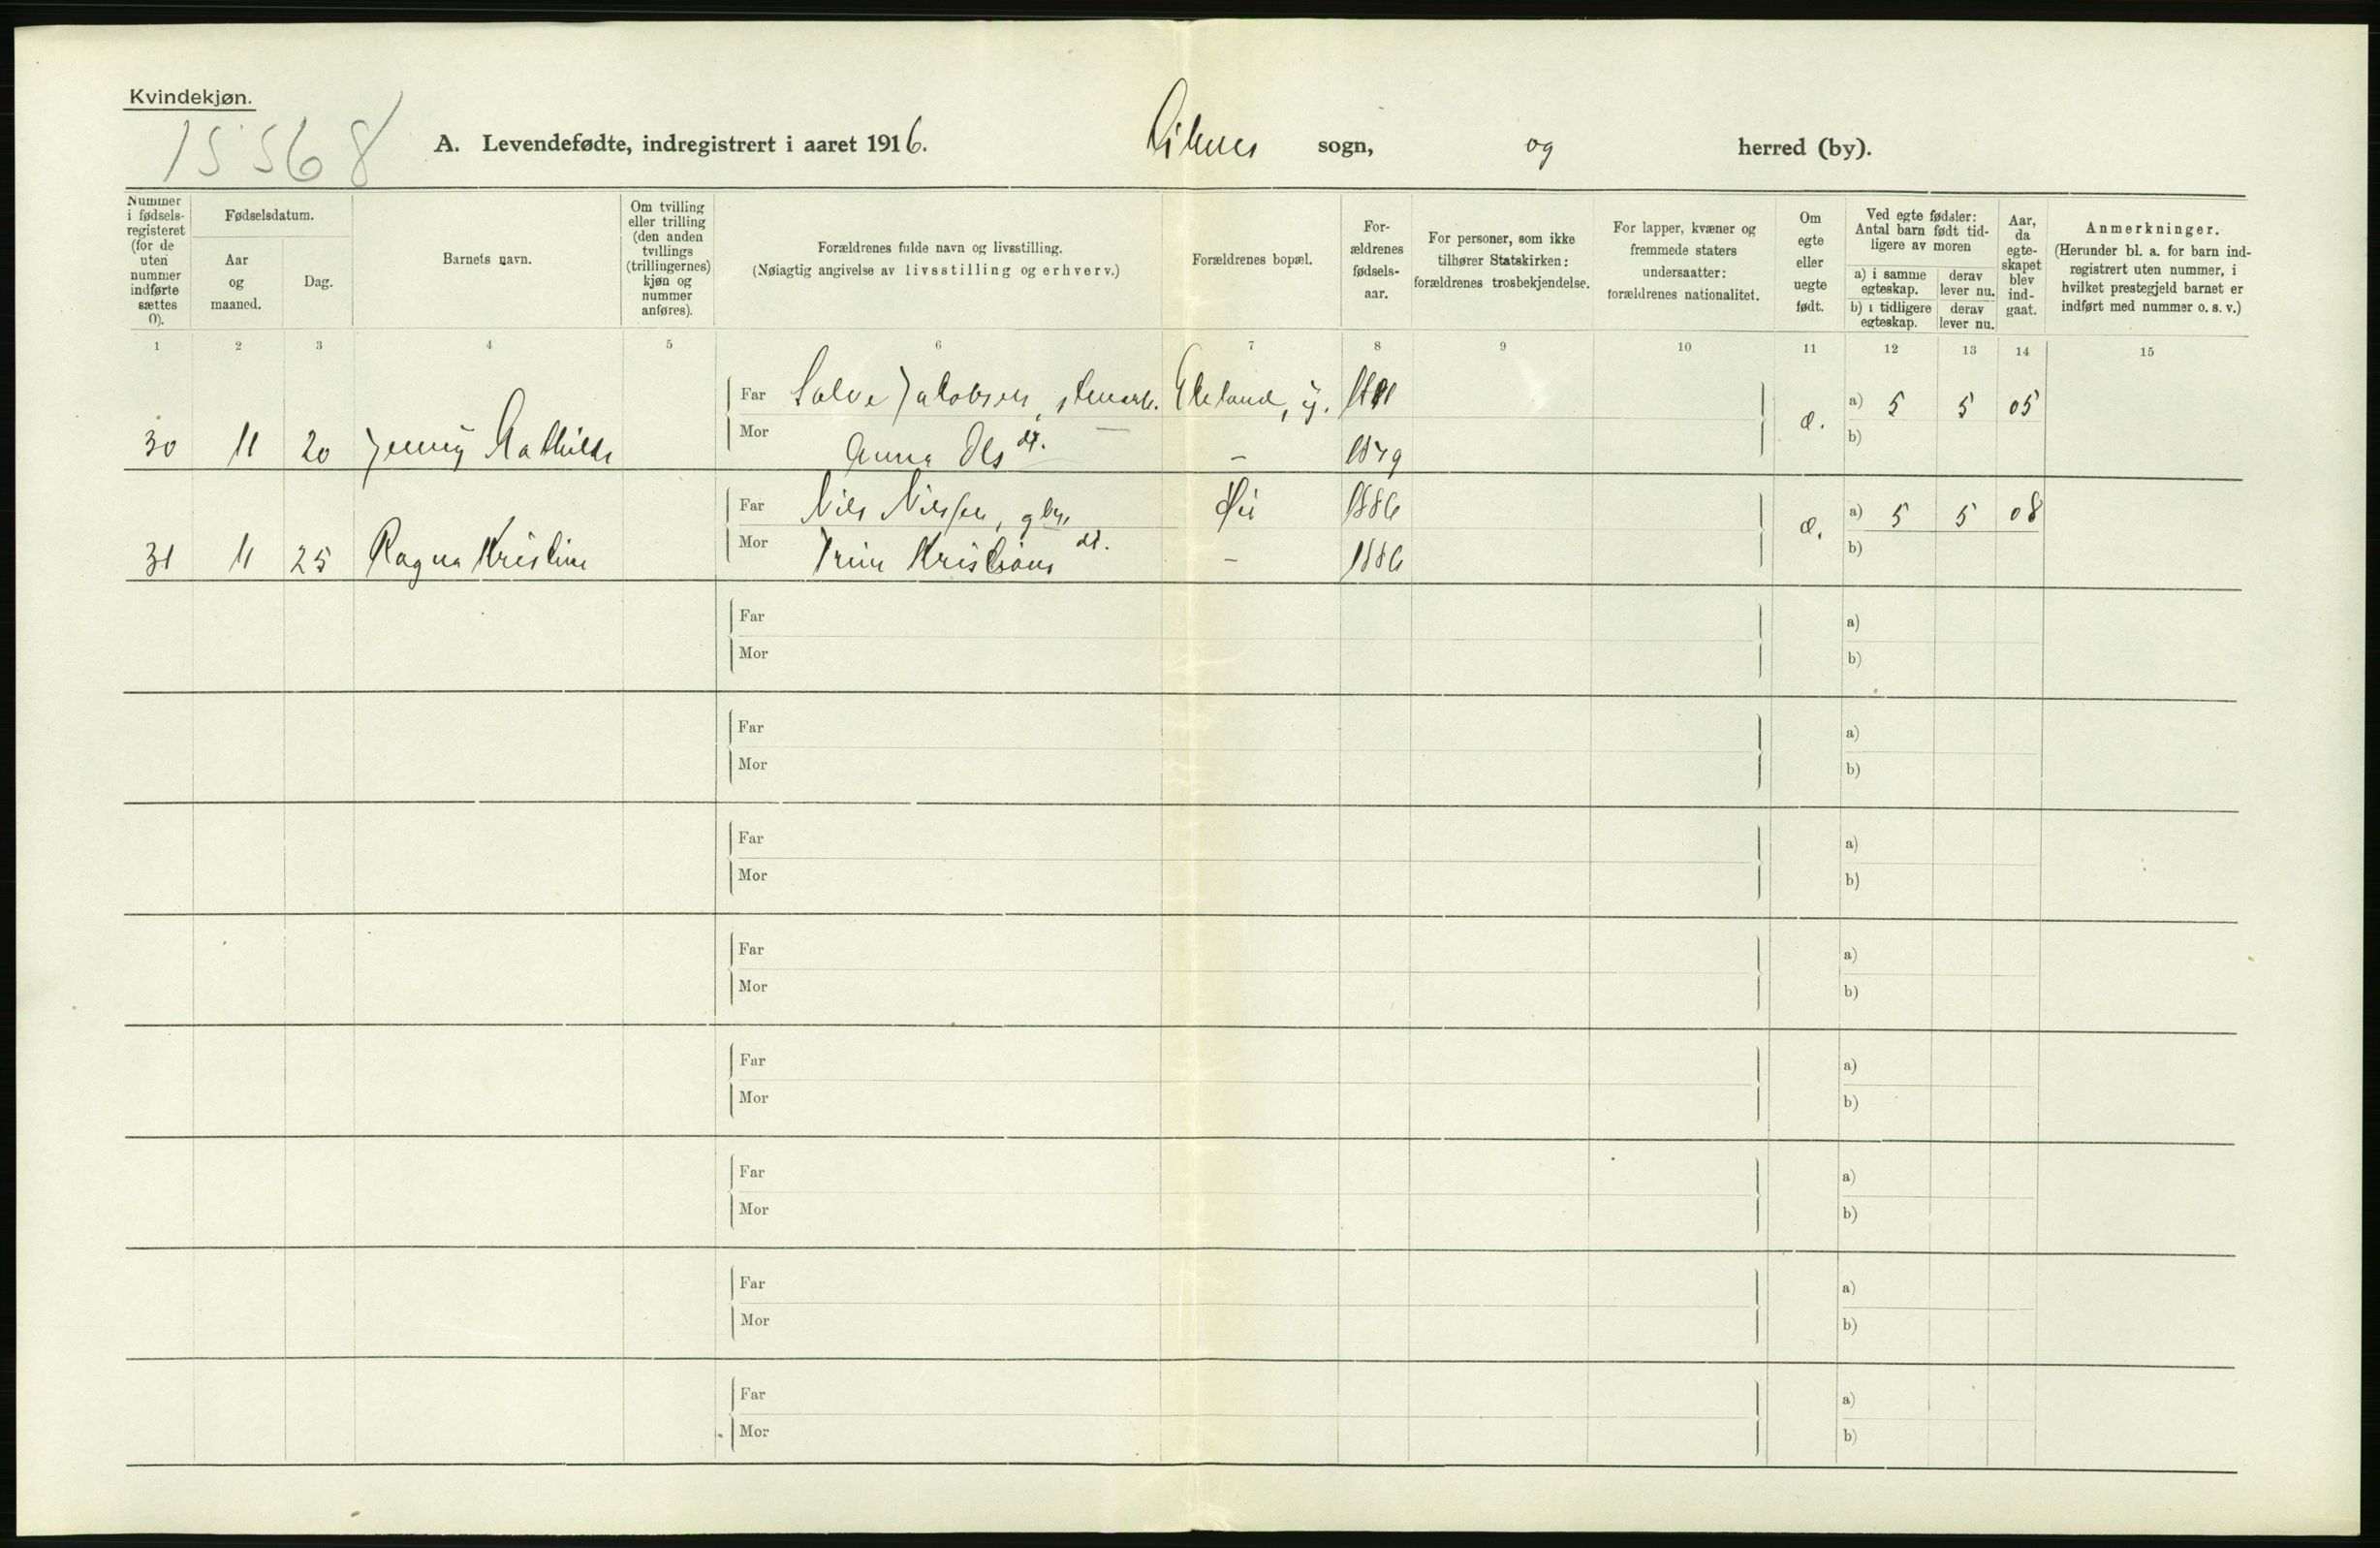 Kvindekjøn.
15568
A. Levendefødte, indregistrert i aaret 1916. sogn, og herred (by).
Nummer i fødsels-registeret (for de uten nummer indførte sættes 0).
Fødselsdatum.
Aar og maaned.
Dag.
Barnets navn.
Om tvilling eller trilling (den anden tvillings (trillingernes) kjøn og nummer anføres).
Forældrenes fulde navn og livsstilling.
(Nøiagtig angivelse av livsstilling og erhverv.)
Forældrenes bopæl.
For-ældrenes fødsels-aar.
For personer, som ikke tilhører Statskirken: forældrenes trosbekjendelse.
For lapper, kvæner og fremmede staters undersaatter: forældrenes nationalitet.
Om egte eller uegte født.
Ved egte fødsler: Antal barn født tid-ligere av moren
a) i samme egteskap.
derav lever nu.
b) i tidligere egteskap.
derav lever nu.
Aar, da egte-skapet blev ind-gaat.
Anmerkninger.
(Herunder bl. a. for barn ind-registrert uten nummer, i hvilket prestegjeld barnet er indført med nummer o. s. v.)
1 2 3 4 5 6 7 8 9 10 11 12 13 14 15
Far Salve Jakobsen, a) 5 5 05
30 11 20 Jenny Mathilde Mor Anna Olsdt. - 1879 e. b)
Far Nils Nilssen, gbr. 1886 a) 5 5 08
31 11 25 Ragna Kristine Mor Trine Kristiansdt. - 1886 e. b)
Far a)
Mor b)
Far a)
Mor b)
Far a)
Mor b)
Far a)
Mor b)
Far a)
Mor b)
Far a)
Mor b)
Far a)
Mor b)
Far a)
Mor b)